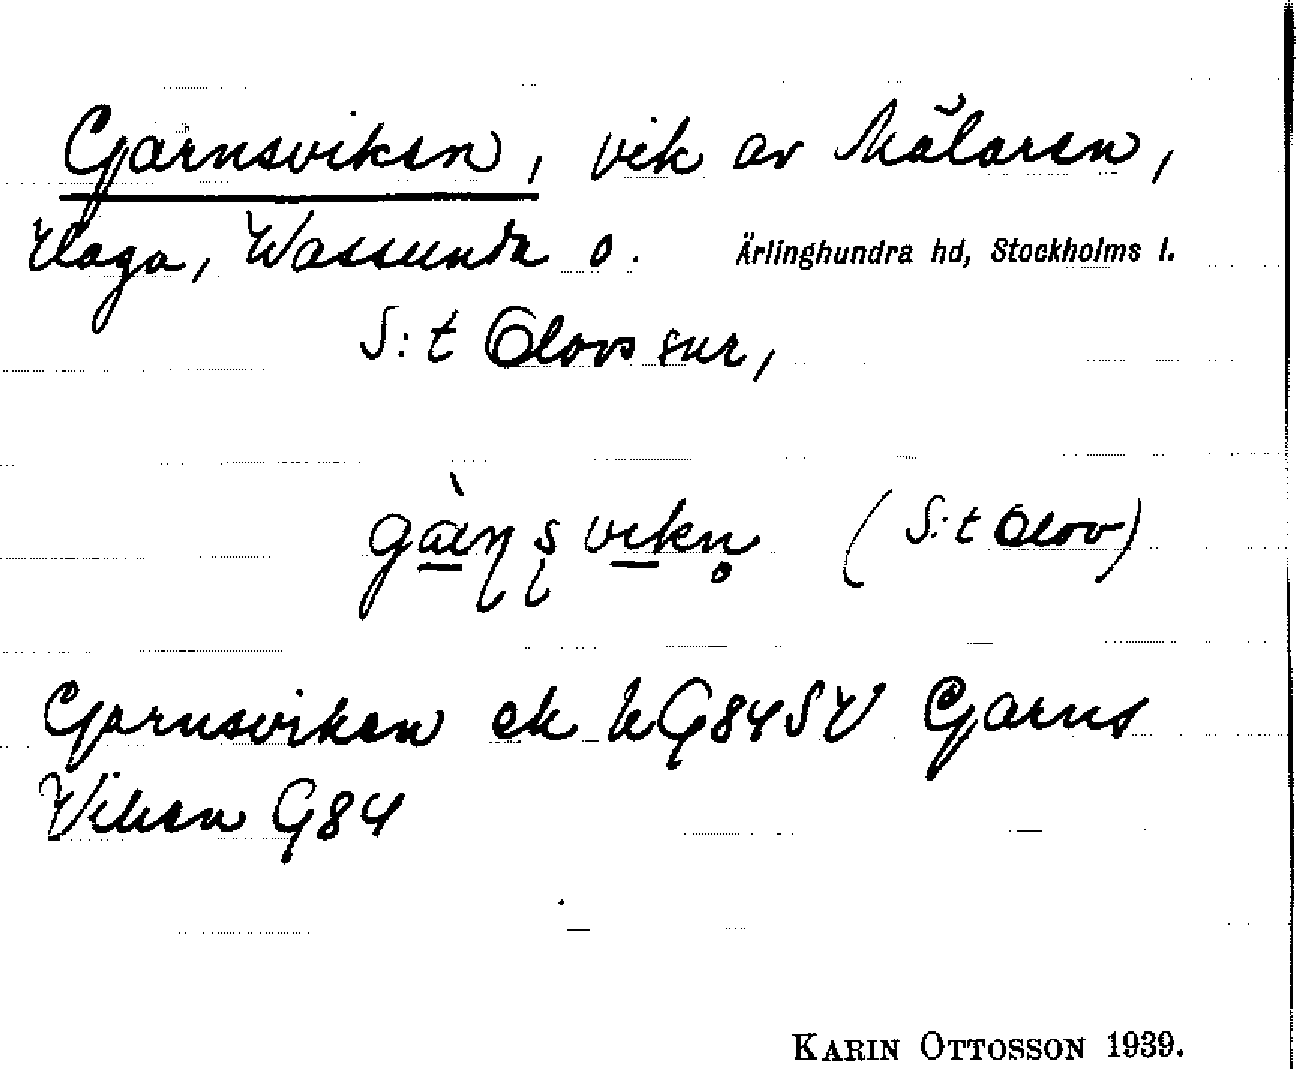 Garnsviken, vik av Mälaren,
Haga, Wassunda o. Ärlinghundra hd, Stockholms l.
S:t Olovs snr,
(S:t Olov)
Garnsviken ek G84SV Garns
Viken G84
KARIN OTTOSSON 1939.